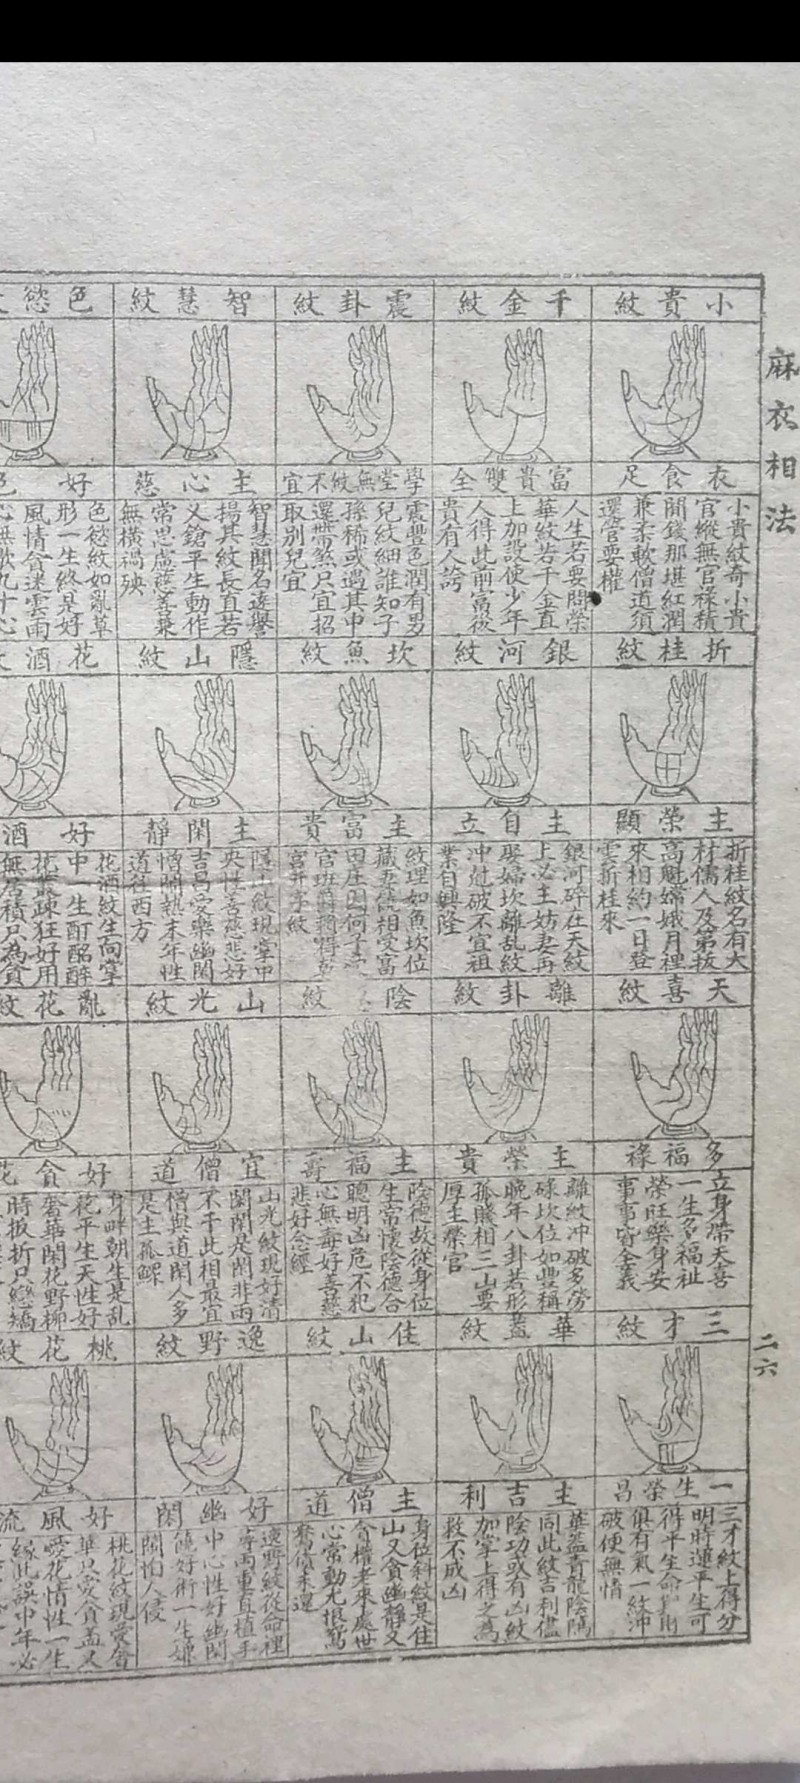 麻衣相法
二六
小貴紋
衣食足
小貴紋奇小貴
官縱無官祿積
閒錢那堪紅潤
兼柔軟僧道須
還管要權
千金紋
富貴雙全
人生若要問榮
華紋若千金直
上加設使少年
人得此前富後
貴有人誇
震卦紋
學堂無紋不宜
震豐色潤有男
兒紋細誰知子
孫稀或遇其中
還帶煞只宜招
取別兒宜
智慧紋
主心慈
智慧聞名遠譽
揚其紋長直若
又鎗平生動作
常思慮慈善兼
無橫禍殃
色慾
好色
色慾紋如亂草
形一生終是好
風情貪迷雲雨
心無歇九十心
折桂紋
主榮顯
折桂紋名有大
材儒人及第拔
高魁嫦娥月裡
來相約一日登
雲折桂來
銀河紋
主自立
銀河碎在天紋
上必主妨妻再
娶婦坎離乱紋
冲尅破不宜祖
業自興隆
坎魚紋
主富貴
紋理如魚坎位
藏妻相受富
田庄因何子
官班爵
宮井字紋
隱山紋
主閑靜
隱山紋現掌中
央性善慈悲好
吉昌愛樂幽閑
憎鬧熱末年性
道往西方
花酒
好酒
花酒紋生向掌
中一生酊酩醉
花叢疎狂好用
無居積只為貪
天喜紋
多福祿
立身帶天喜
一生多福祉
榮旺樂身安
事事皆全義
離卦紋
主榮貴
離紋冲破多勞
碌坎位如豐稱
晚年八卦若形
孤賤相三山要
厚主榮官
陰紋
主福壽
陰德故從身位
生常懷陰德合
聰明凶危不犯
心無毒好善慈
悲好念經
山光紋
宜僧道
山光紋現好清
閑閑是閑非兩
不干此相最宜
僧與道閑人多
是主孤鰥
亂花紋
好貪花
身畔朝生是乱
花平生天性好
奢華閑花野柳
時扳折只戀嬌
三才紋
一生榮昌
三才紋上得分
明時運平生可
得平生命
俱有氣一紋沖
破便無情
華蓋紋
主吉利
華蓋青龍陰隲
同此紋吉利儘
陰功或有凶紋
加掌上得之為
救不成凶
住山紋
主僧道
身位斜紋是住
山又貪幽靜又
貪權老來處世
心常動尤恨鴛
鴦債未還
逸野紋
好幽閑
逸野紋從命裡
尋兩重直植手
中心性好幽閑
饒好術一生嫌
鬧怕人侵
桃花紋
好風流
桃花紋現愛奢
華只愛貪盃又
愛花情性一生
緣此誤中年必